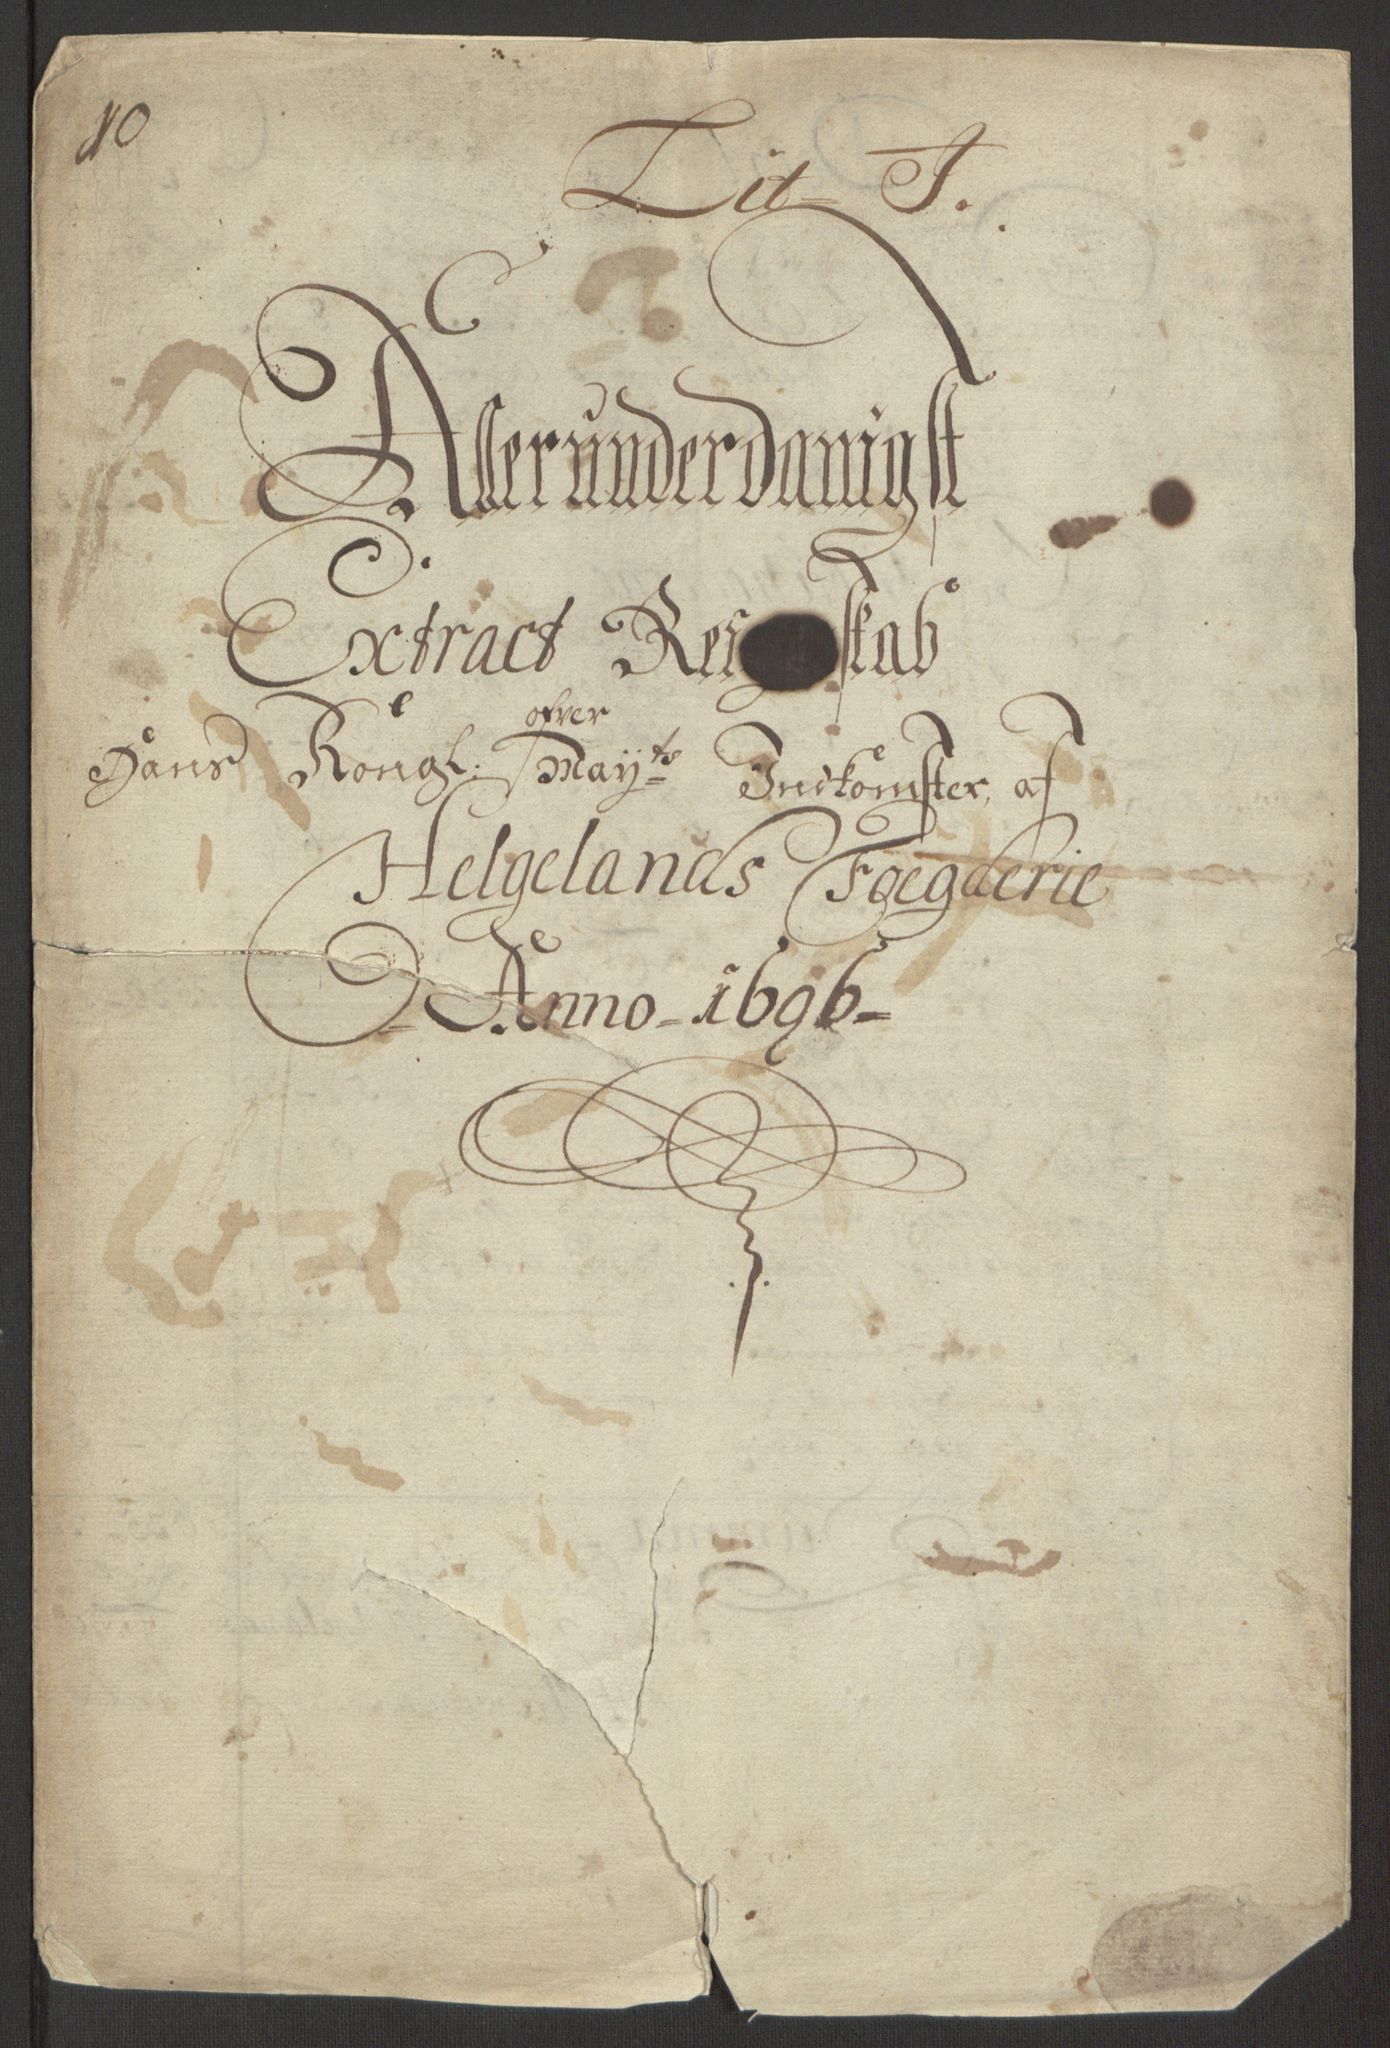 10
Lit- J.
Allerunderdanigst
Extract Reg skab
ofver
Hans Kongl: May:ts Indkomster, af
Helgelands Fogderie
Anno-1696-